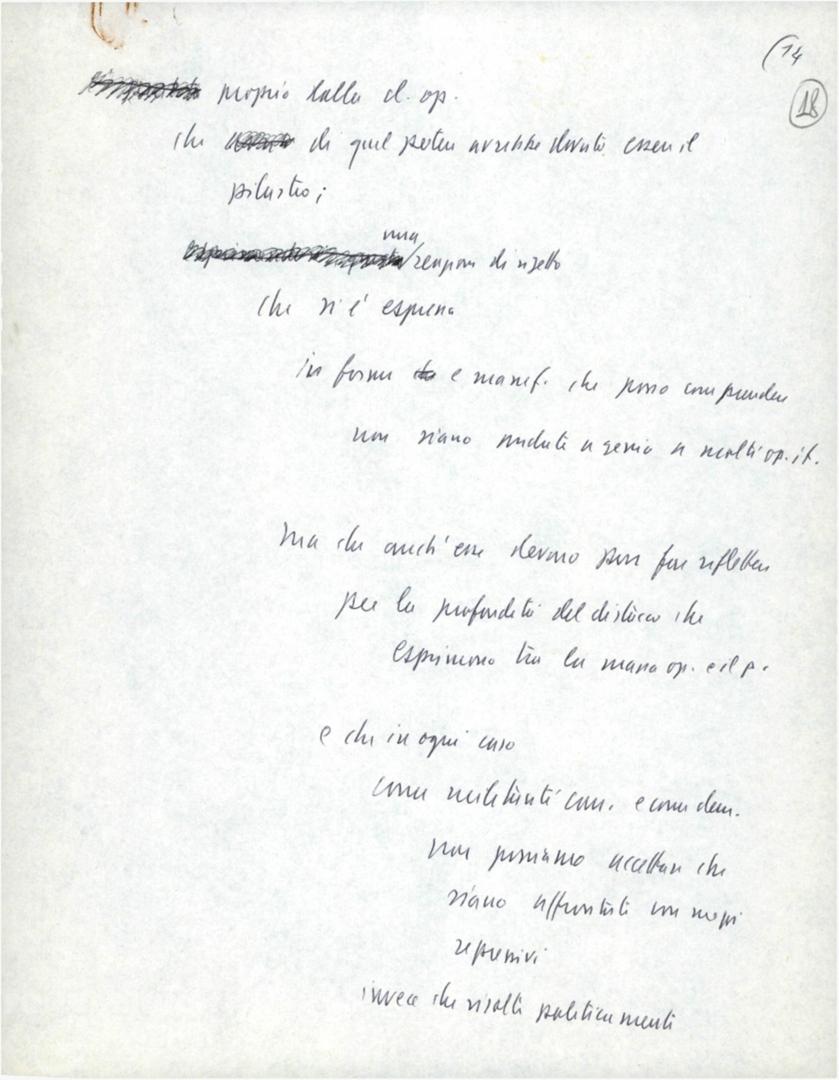 (14
18
proprio dalla cl. op.
che di quel potere avrebbe dovuto essere il
pilastro;
una
reazione di rigetto
che si è espressa
in forme e manif. che posso comprendere
non siano andate a genio a molti op. it.
ma che anch'esse devono pur far riflettere
per la profondità del distacco che
esprimono tra la massa op. e il p.
e che in ogni caso
come militanti com. e come dem.
non possiamo accettare che
siano affrontate con mezzi
repressivi
invece che risolte politicamente